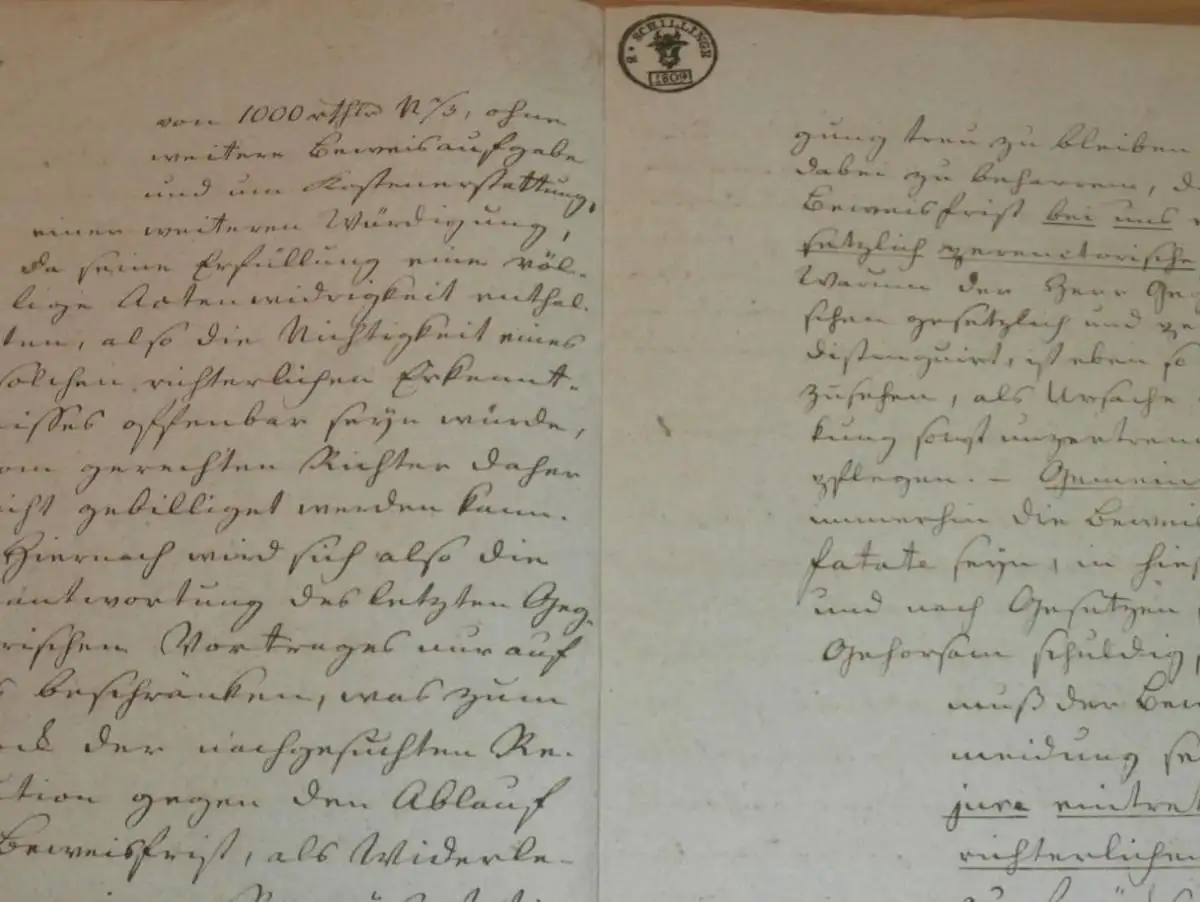 von 1000 rthlr N 2/3, ohne
weitere Beweisaufgabe
und um Kostenerstattung,
einer weiteren Würdigung,
da seine Erfüllung eine völ-
lige Actenwidrigkeit enthal-
ten, also die Nichtigkeit eines
solchen richterlichen Erkennt-
nisses offenbar seyn würde,
vom gerechten Richter daher
nicht gebilliget werden kann.
Hiernach wird sich also die
antwortung des letzten Geg-
rischen Vortrages nur auf
beschränken, was zum
der nachgesuchten Re-
ution gegen den Ablauf
Beweisfrist, als Widerle-
8 SCHILLINGE
1809
gung treu zu bleiben
dabei zu beharren, d
Beweisfrist bei uns
setzlich peremtorische
Warum der Herr Geg
schen gesetzlich und pe
distinguirt, ist eben so
zusehen, als Ursache
kung sonst unzertren
pflegen. – Gemein
immerhin die Beweis
fatale seyn, in hies
und nach Gesetzen
Gehorsam schuldig
muß der Bew
meidung se
jure eintret
richterlichen